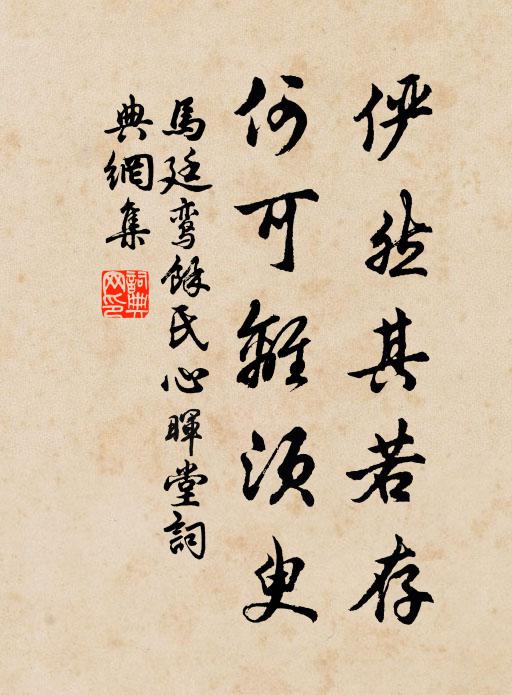 俨然其若存
何可離須臾
馬廷鸾餘氏心暉堂詞
典網集
詞典网印